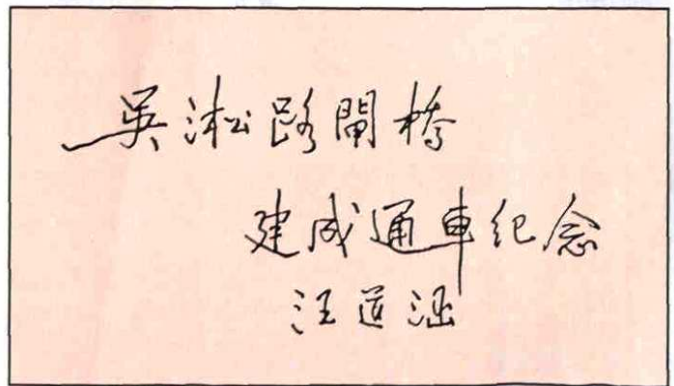 吴淞路閘橋
建成通車纪念
汪道涵